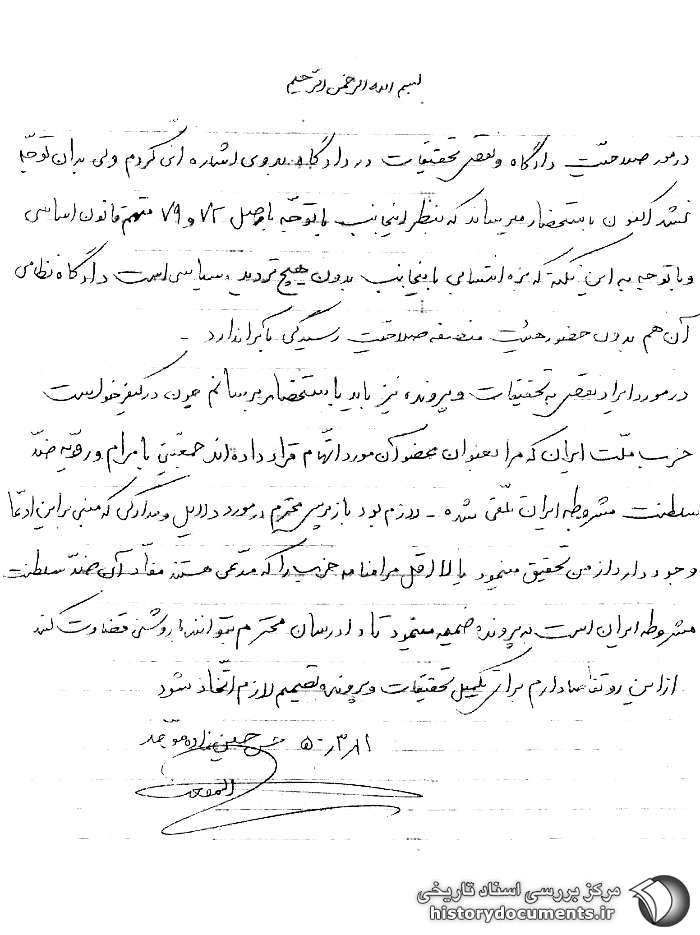 بسم الله الرحمن الرحیم
در مورد صلاحیّت دادگاه و نقص تحقیقات در دادگاه بدوی اشاره ائی کردم ولی بدان توجّه
نشد اکنون باستحضار میرساند که بنظر اینجانب با توجّه باصل ۷۲ و ۷۹ متمم قانون اساسی
و با توجه به این نکته که بزه انتسابی باینجانب بدون هیچ تردید سیاسی است دادگاه نظامی
آن هم بدون حضور هیئت منصفه صلاحیّت رسیدگی بآنرا ندارد -
در مورد ایراد نقص به تحقیقات و پرونده نیز باید باستحضار برسانم چون در کیفرخواست
حزب ملّت ایران که مرا بعنوان عضو آن مورد اتّهام قرار داده اند جمعیّتی با مرام و رویّه ضدّ
سلطنت مشروطه ایران تلّقی شده - لازم بود بازپرس محترم در مورد دلایل و مدارکی که مبنی بر این ادّعا
وجود دارد از من تحقیق مینمود یا لااقل مرامنامه حزب را که مدّعی هستند مفاد آن ضدّ سلطنت
مشروطه ایران است به پرونده ضمیمه مینمود تا دادرسان محترم بتوانند با روشنی قضاوت کنند
از این رو تقاضا دارم برای تکمیل تحقیقات و پرونده تصمیم لازم اتّخاذ شود
حسین زاده موحد
مرکز بررسی اسناد تاریخی
historydocuments.ir